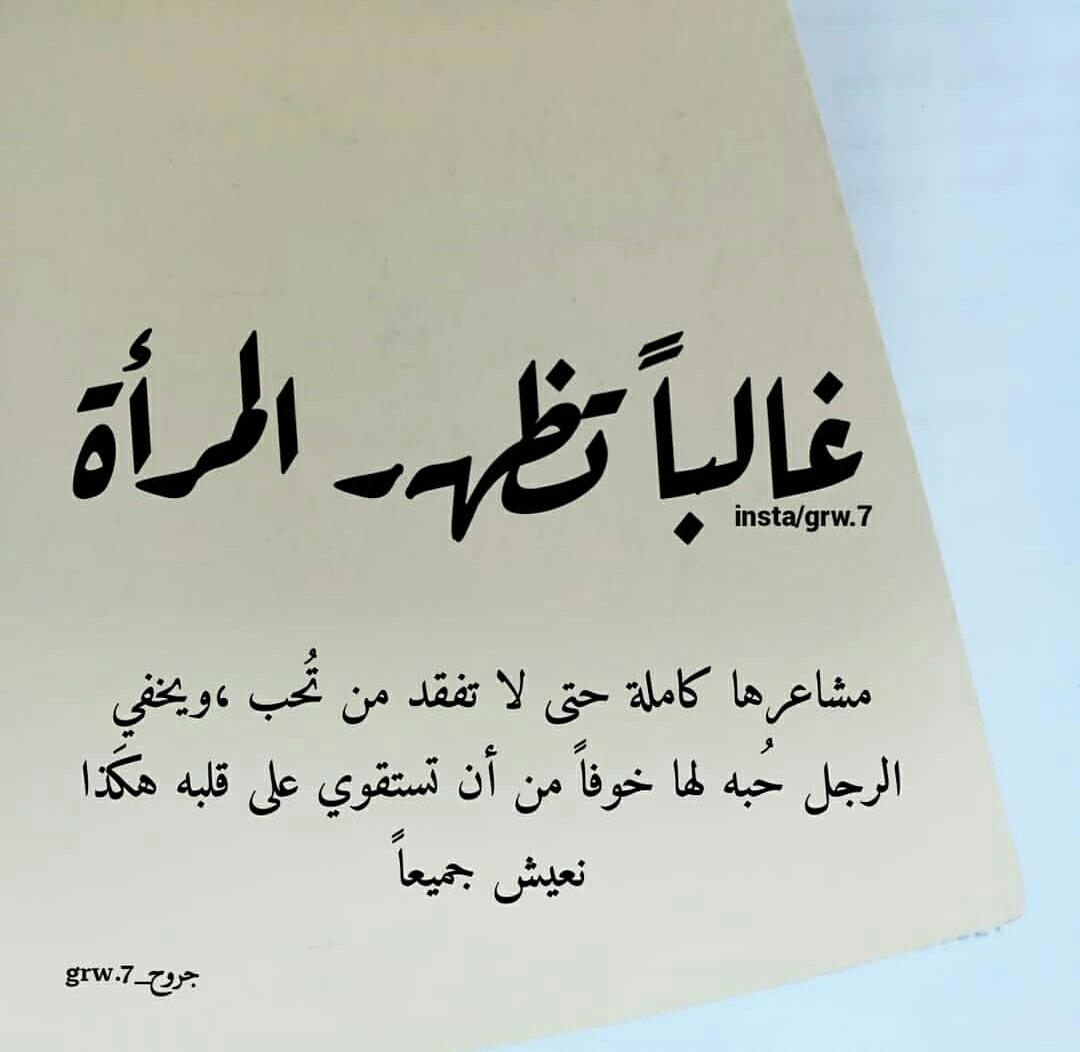 غالباً تظهر المرأة
insta/grw.7
مشاعرها كاملة حتى لا تفقد من تُحب ،ويخفي
الرجل حُبه لها خوفاً من أن تستقوي على قلبه هكَذا
نعيش جميعاً
جروح_grw.7